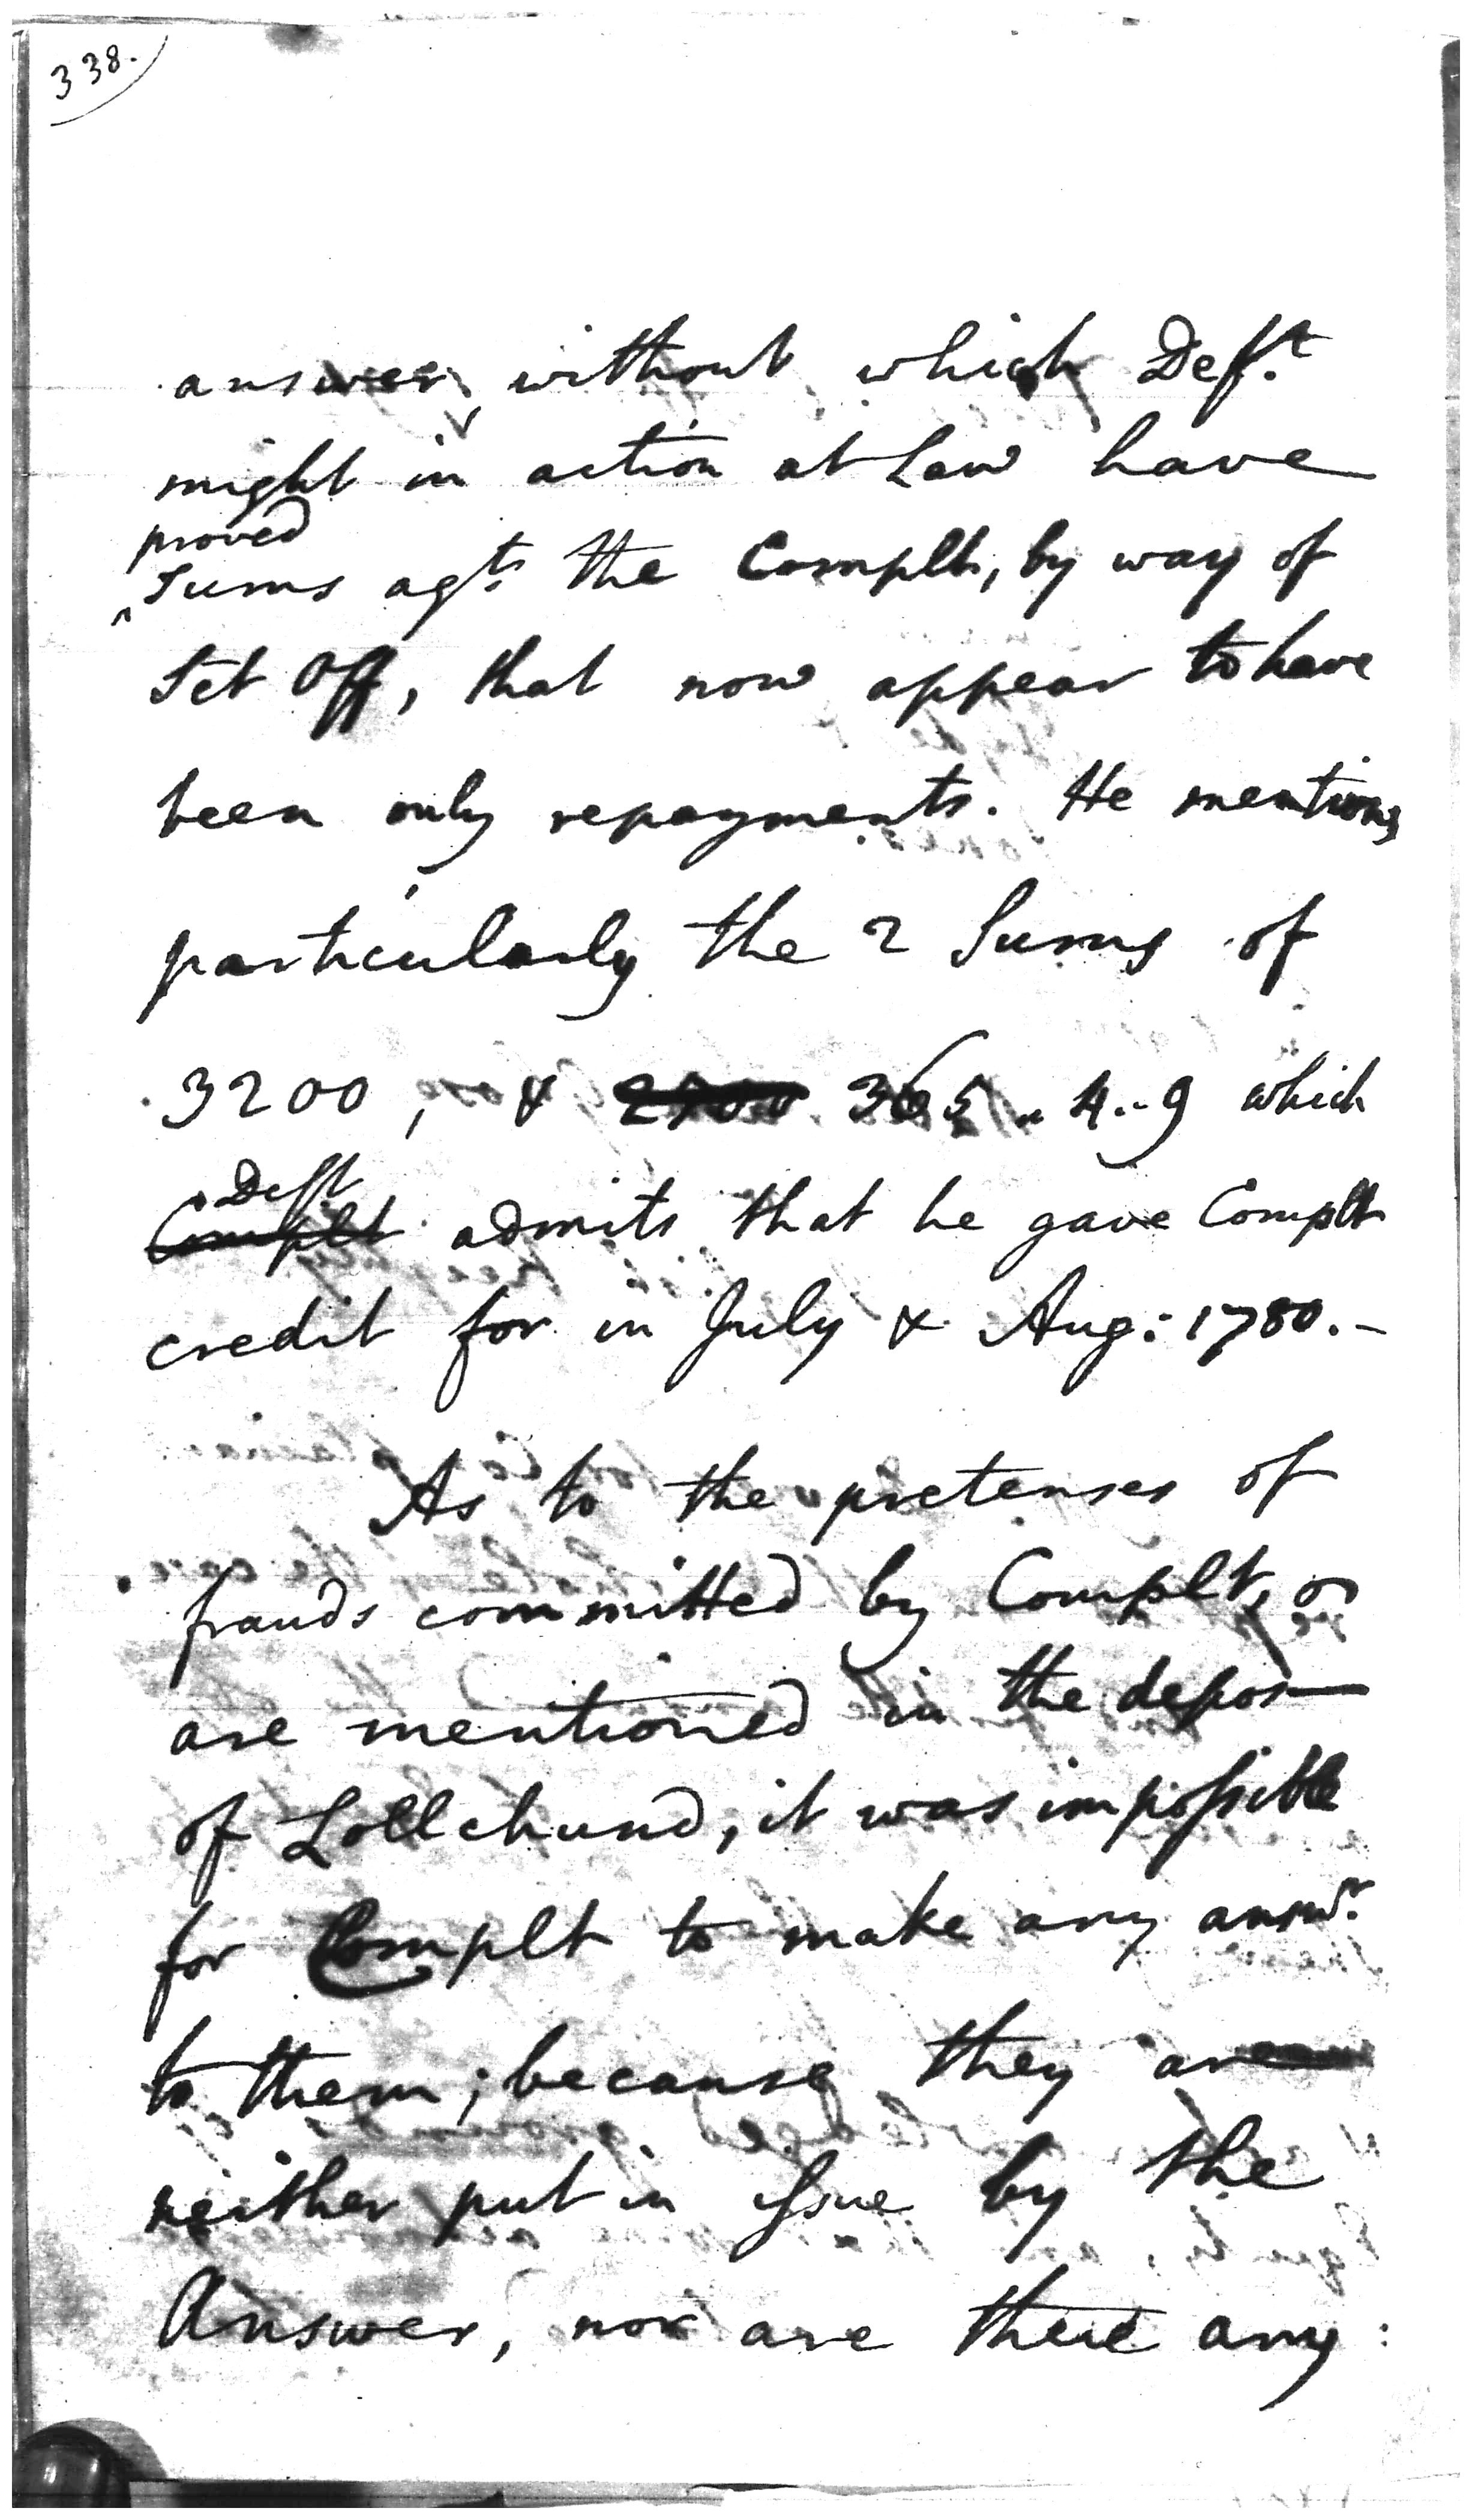 338.
answer, without which Deft.
might in action at Law have
proved
Sums agt. the Complt, by way of
Set Off, that now appear to have
been only repayments. He mentions
particularly the 2 Sums of
3200, & 365 .. 4 .. 9 which
Deft
Complt admits that he gave Complt
credit for in July & Aug: 1780. -
As to the pretenses of
frauds committed by Complt, as
are mentioned in the depos—
of Lollchund, it was impossible
for Complt to make any answr.
to them; because they are
neither put in issue by the
Answer, nor are there any